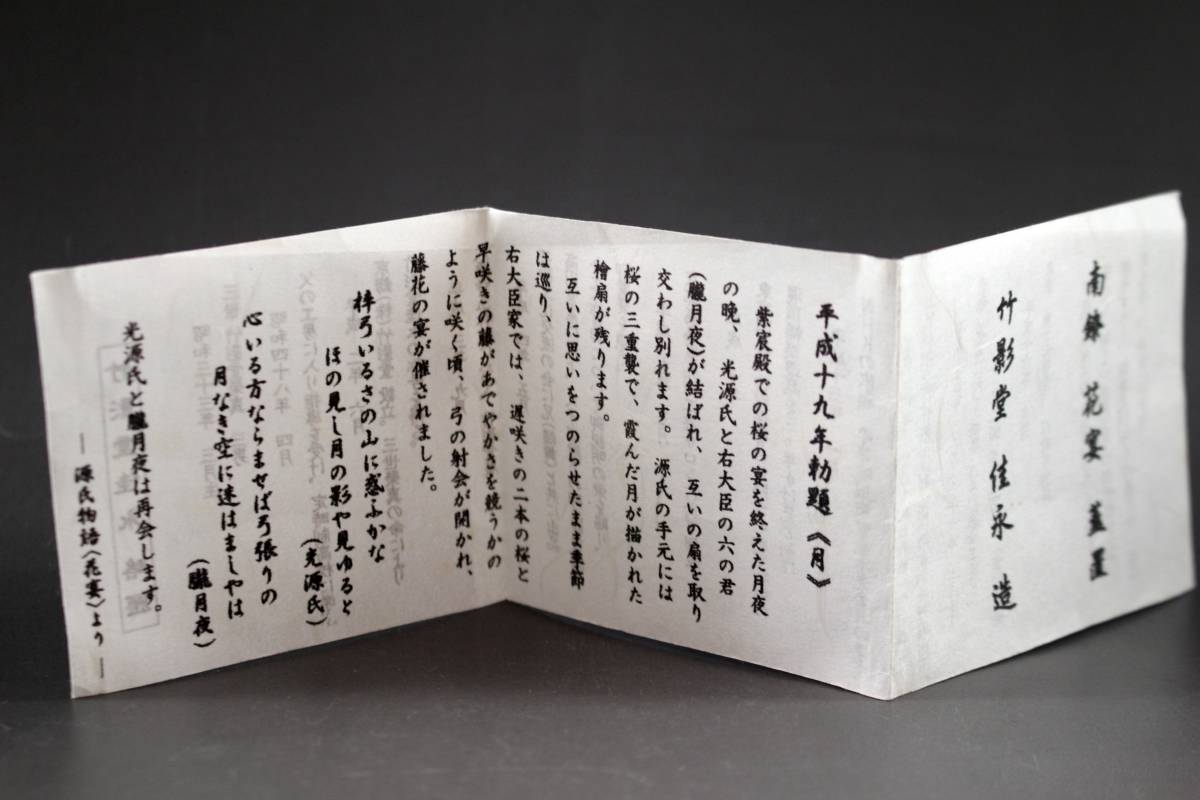 南鐐 花宴 蓋置
竹影堂 佳永 造
平成十九年勅題《月》
紫宸殿での桜の宴を終えた月夜
の晩、光源氏と右大臣の六の君
(朧月夜)が結ばれ、互いの扇を取り
交わし別れます。源氏の手元には
桜の三重襲で、霞んだ月が描かれた
檜扇が残ります。
互いに思いをつのらせたまま季節
は巡り、
右大臣家では、遅咲きの二本の桜と
早咲きの藤があでやかさを競うかの
ように咲く頃、弓の射会が開かれ、
藤花の宴が催されました。
梓弓いるさの山に惑ふかな
ほの見し月の影や見ゆると
(光源氏)
心いる方ならませば弓張りの
月なき空に迷はましやは
(朧月夜)
光源氏と朧月夜は再会します。
― 源氏物語〈花宴〉より ―